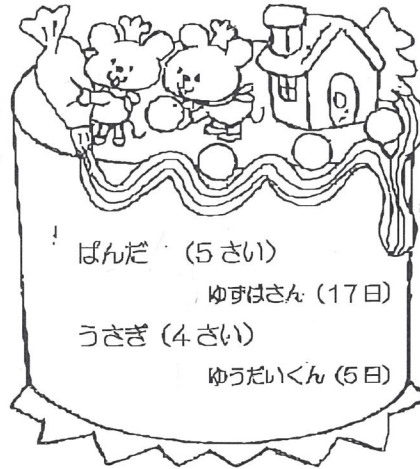 ぱんだ （5さい）
ゆずはさん（17日）
うさぎ（4さい）
ゆうだいくん（5日）